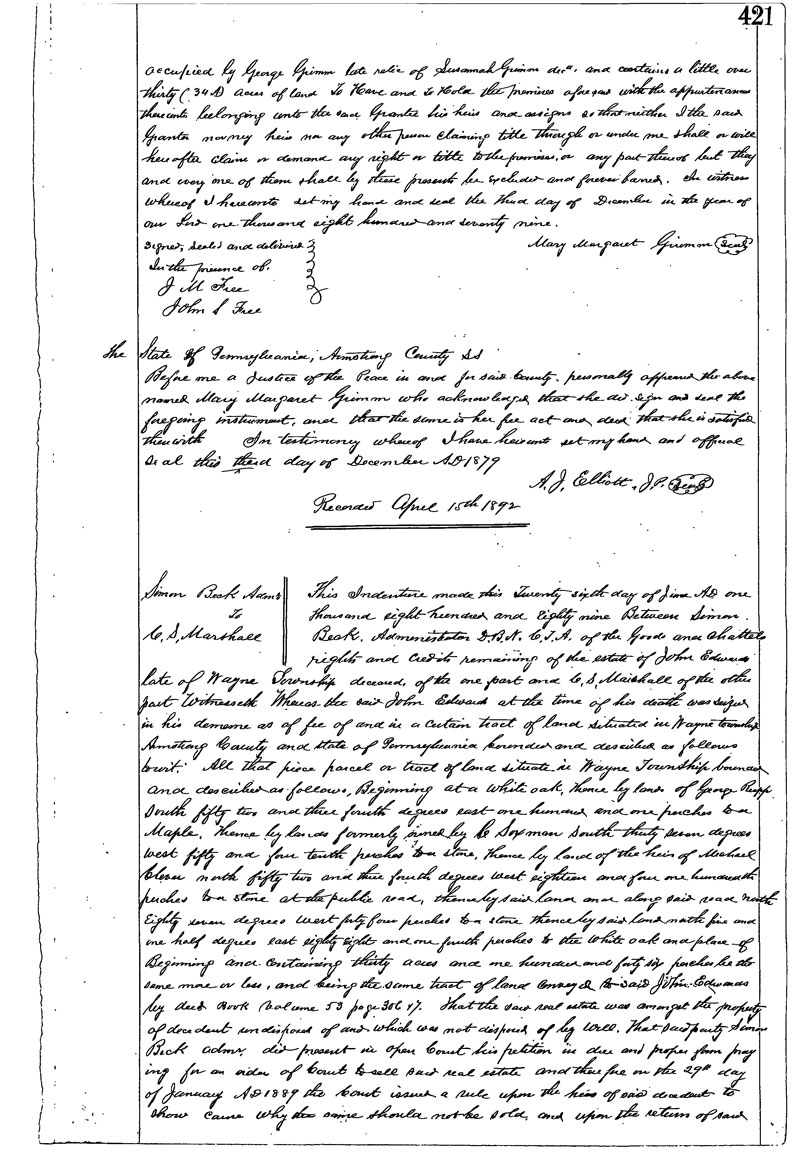 421
occupied by George Grimm late relic of Susannah Grimm decd. and contains a little over
thirty (34 A) acres of land To Have and to Hold the premises aforesaid with the appurtenances
thereunto belonging unto the said Grantee his heirs and assigns so that neither I the said
Grantor nor my heirs nor any other person claiming title through or under me shall or will
hereafter claim or demand any right or title to the premises, or any part thereof but they
and every one of them shall by these presents be excluded and forever barred. In witness
whereof I hereunto set my hand and seal the third day of December in the year of
our Lord one thousand eight hundred and seventy nine.
Signed, sealed and delivered Mary Margaret Grimm Seal
In the presence of.
J M Free
John S Free
The State of Pennsylvania, Armstrong County SS
Before me a Justice of the Peace in and for said County. personally appeared the above
named Mary Margaret Grimm who acknowledged that she did sign and seal the
foregoing instrument, and that the same is her free act and deed that she is satisfied
therewith In testimony whereof I have hereunto set my hand and official
seal this third day of December AD 1879
A. J. Elliott, J.P. Seal
Recorded April 15th 1892
Simon Beck Admr This Indenture made this Twenty sixth day of June AD one
To thousand eight hundred and Eighty nine Between Simon.
C. S. Marshall Beck. Administrator D.B.N. C.T.A. of the Goods and chattels
rights and credits remaining of the estate of John Edwards
late of Wayne Township deceased, of the one part and C. S. Marshall of the other
part Witnesseth Whereas the said John Edwards at the time of his death was seized
in his demesne as of fee of and in a certain tract of land situated in Wayne township
Armstrong County and state of Pennsylvania bounded and described as follows
towit: All that piece parcel or tract of land situate in Wayne Township bounded
and described as follows, Beginning at a White oak, thence by lands of George Rupp
South fifty two and three fourth degrees east one hundred and one perches to a
Maple, thence by lands formerly owned by C Soxman South thirty seven degrees
west fifty and four tenth perches to a stone, thence by land of the heirs of Michael
Clever north fifty two and three fourth degrees west eighteen and four one hundredth
perches to a stone at the public road, thence by said land and along said road north
Eighty seven degrees West forty four perches to a stone thence by said land north five and
one half degrees east eighty eight and one fourth perches to the White oak and place of
Beginning and containing thirty acres and one hundred and forty six perches be the
same more or less, and being the same tract of land conveyed to said John Edwards
by deed Book Volume 53 page 306 & 7. That the said real estate was amongst the property
of decedent undisposed of and which was not disposed of by Will, That said party Simon
Beck admr. did present in open Court his petition in due and proper form pray
ing for an order of Court to sell said real estate and therefore on the 29th day
of January AD 1889 the Court issued a rule upon the heirs of said decedent to
show cause why the same should not be sold, and upon the return of said